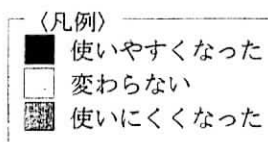 〈凡例〉
使いやすくなった
変わらない
使いにくくなった